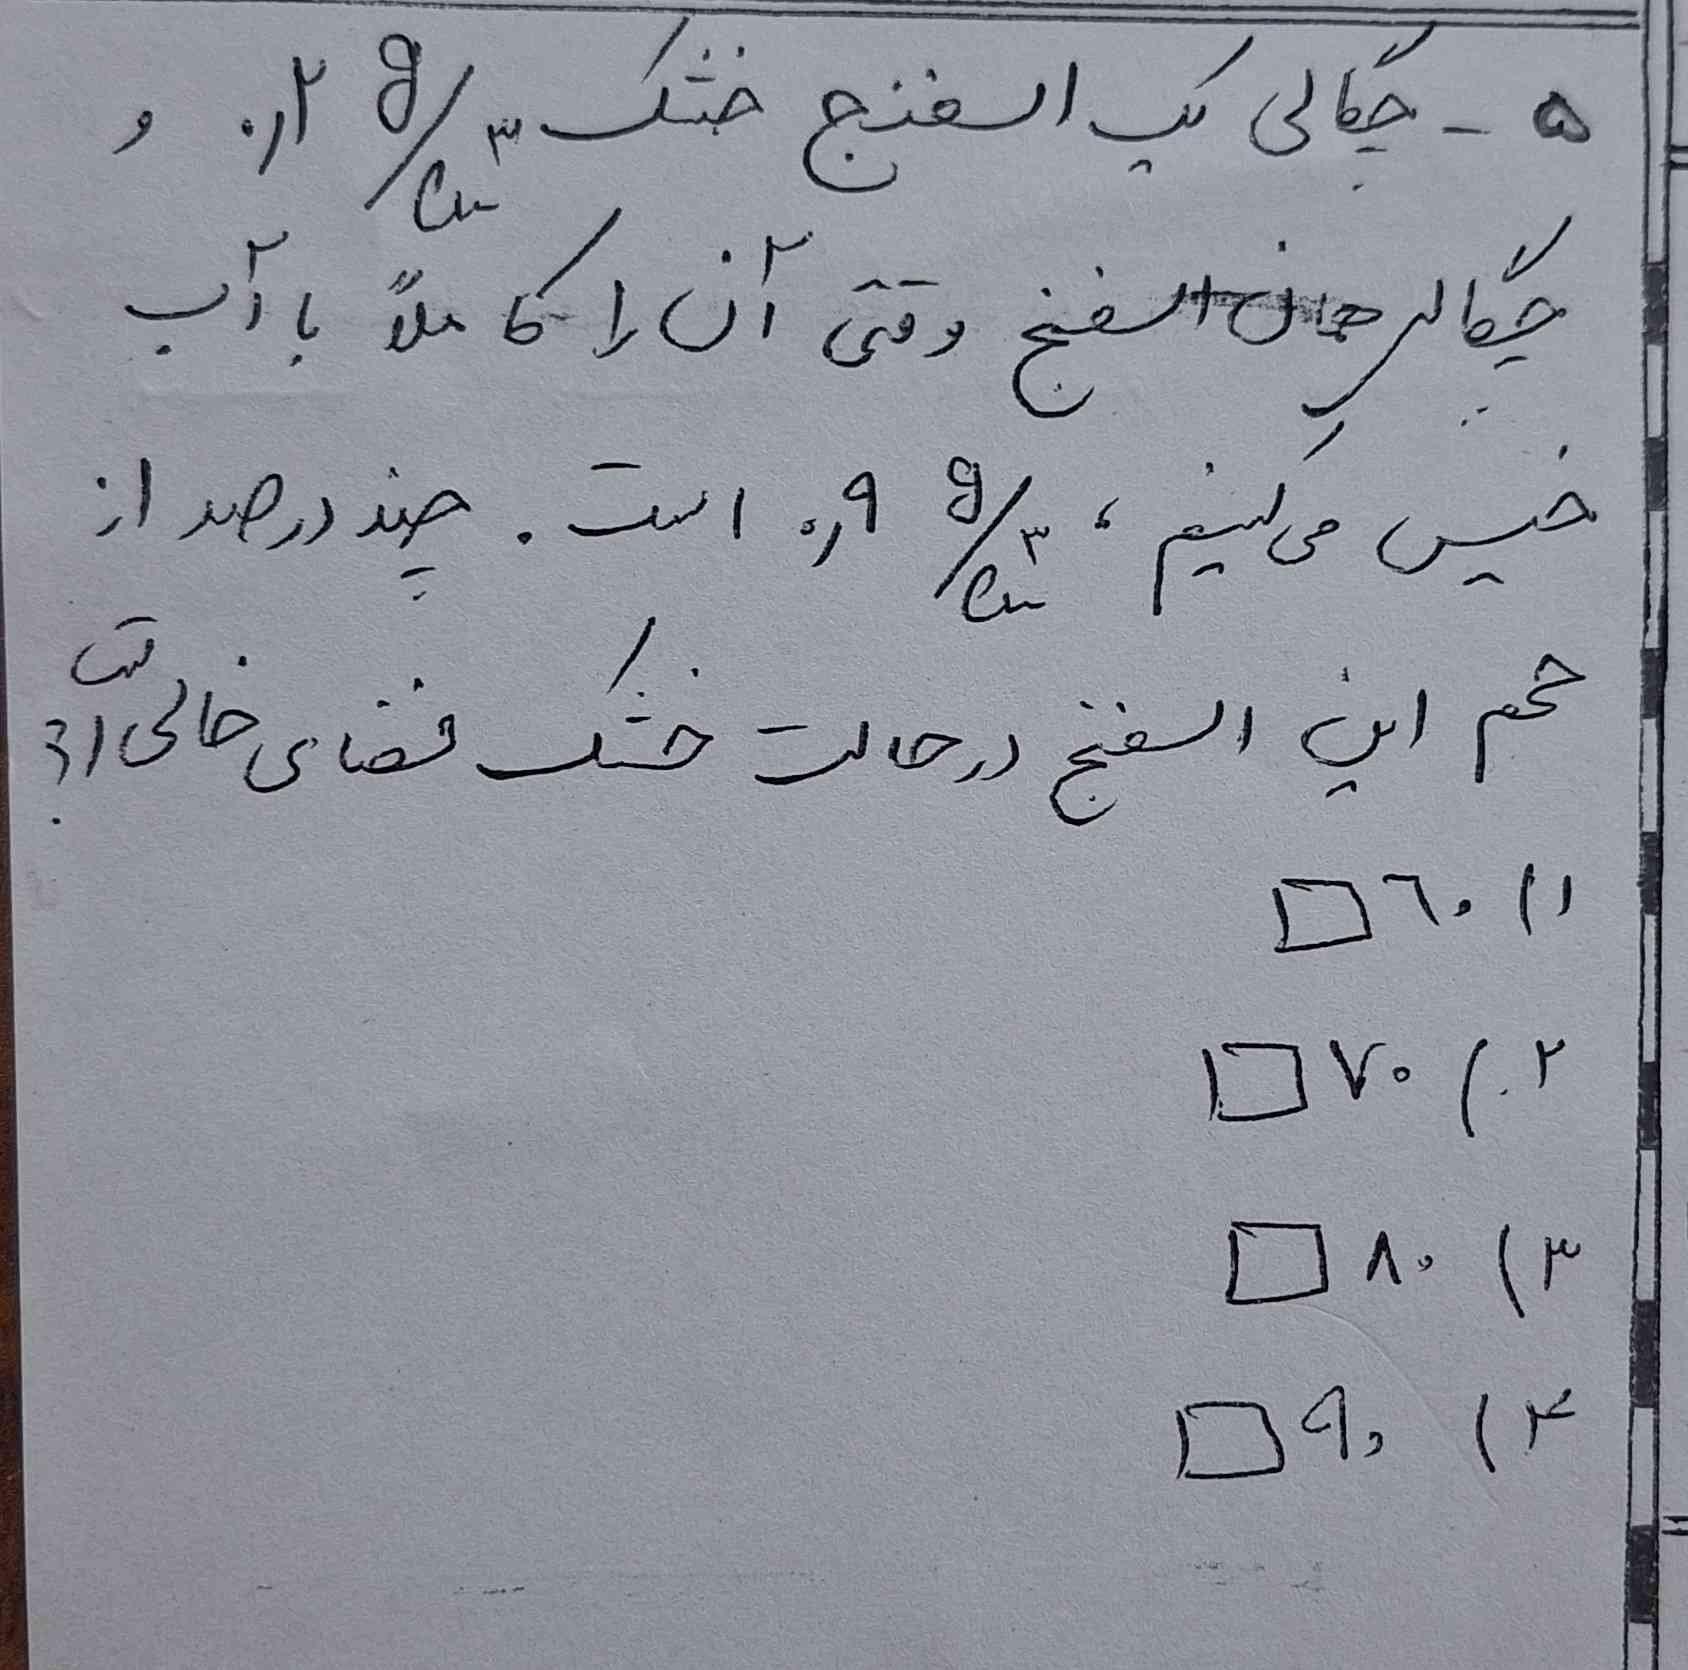 ۵ - چگالی یک اسفنج خشک ۰٫۲ g/cm³ و
چگالی همان اسفنج وقتی آن را کاملاً با آب
خیس می‌کنیم، ۰٫۹ g/cm³ است. چند درصد از
حجم این اسفنج در حالت خشک فضای خالی است؟
۱) ۶۰
۲) ۷۰
۳) ۸۰
۴) ۹۰